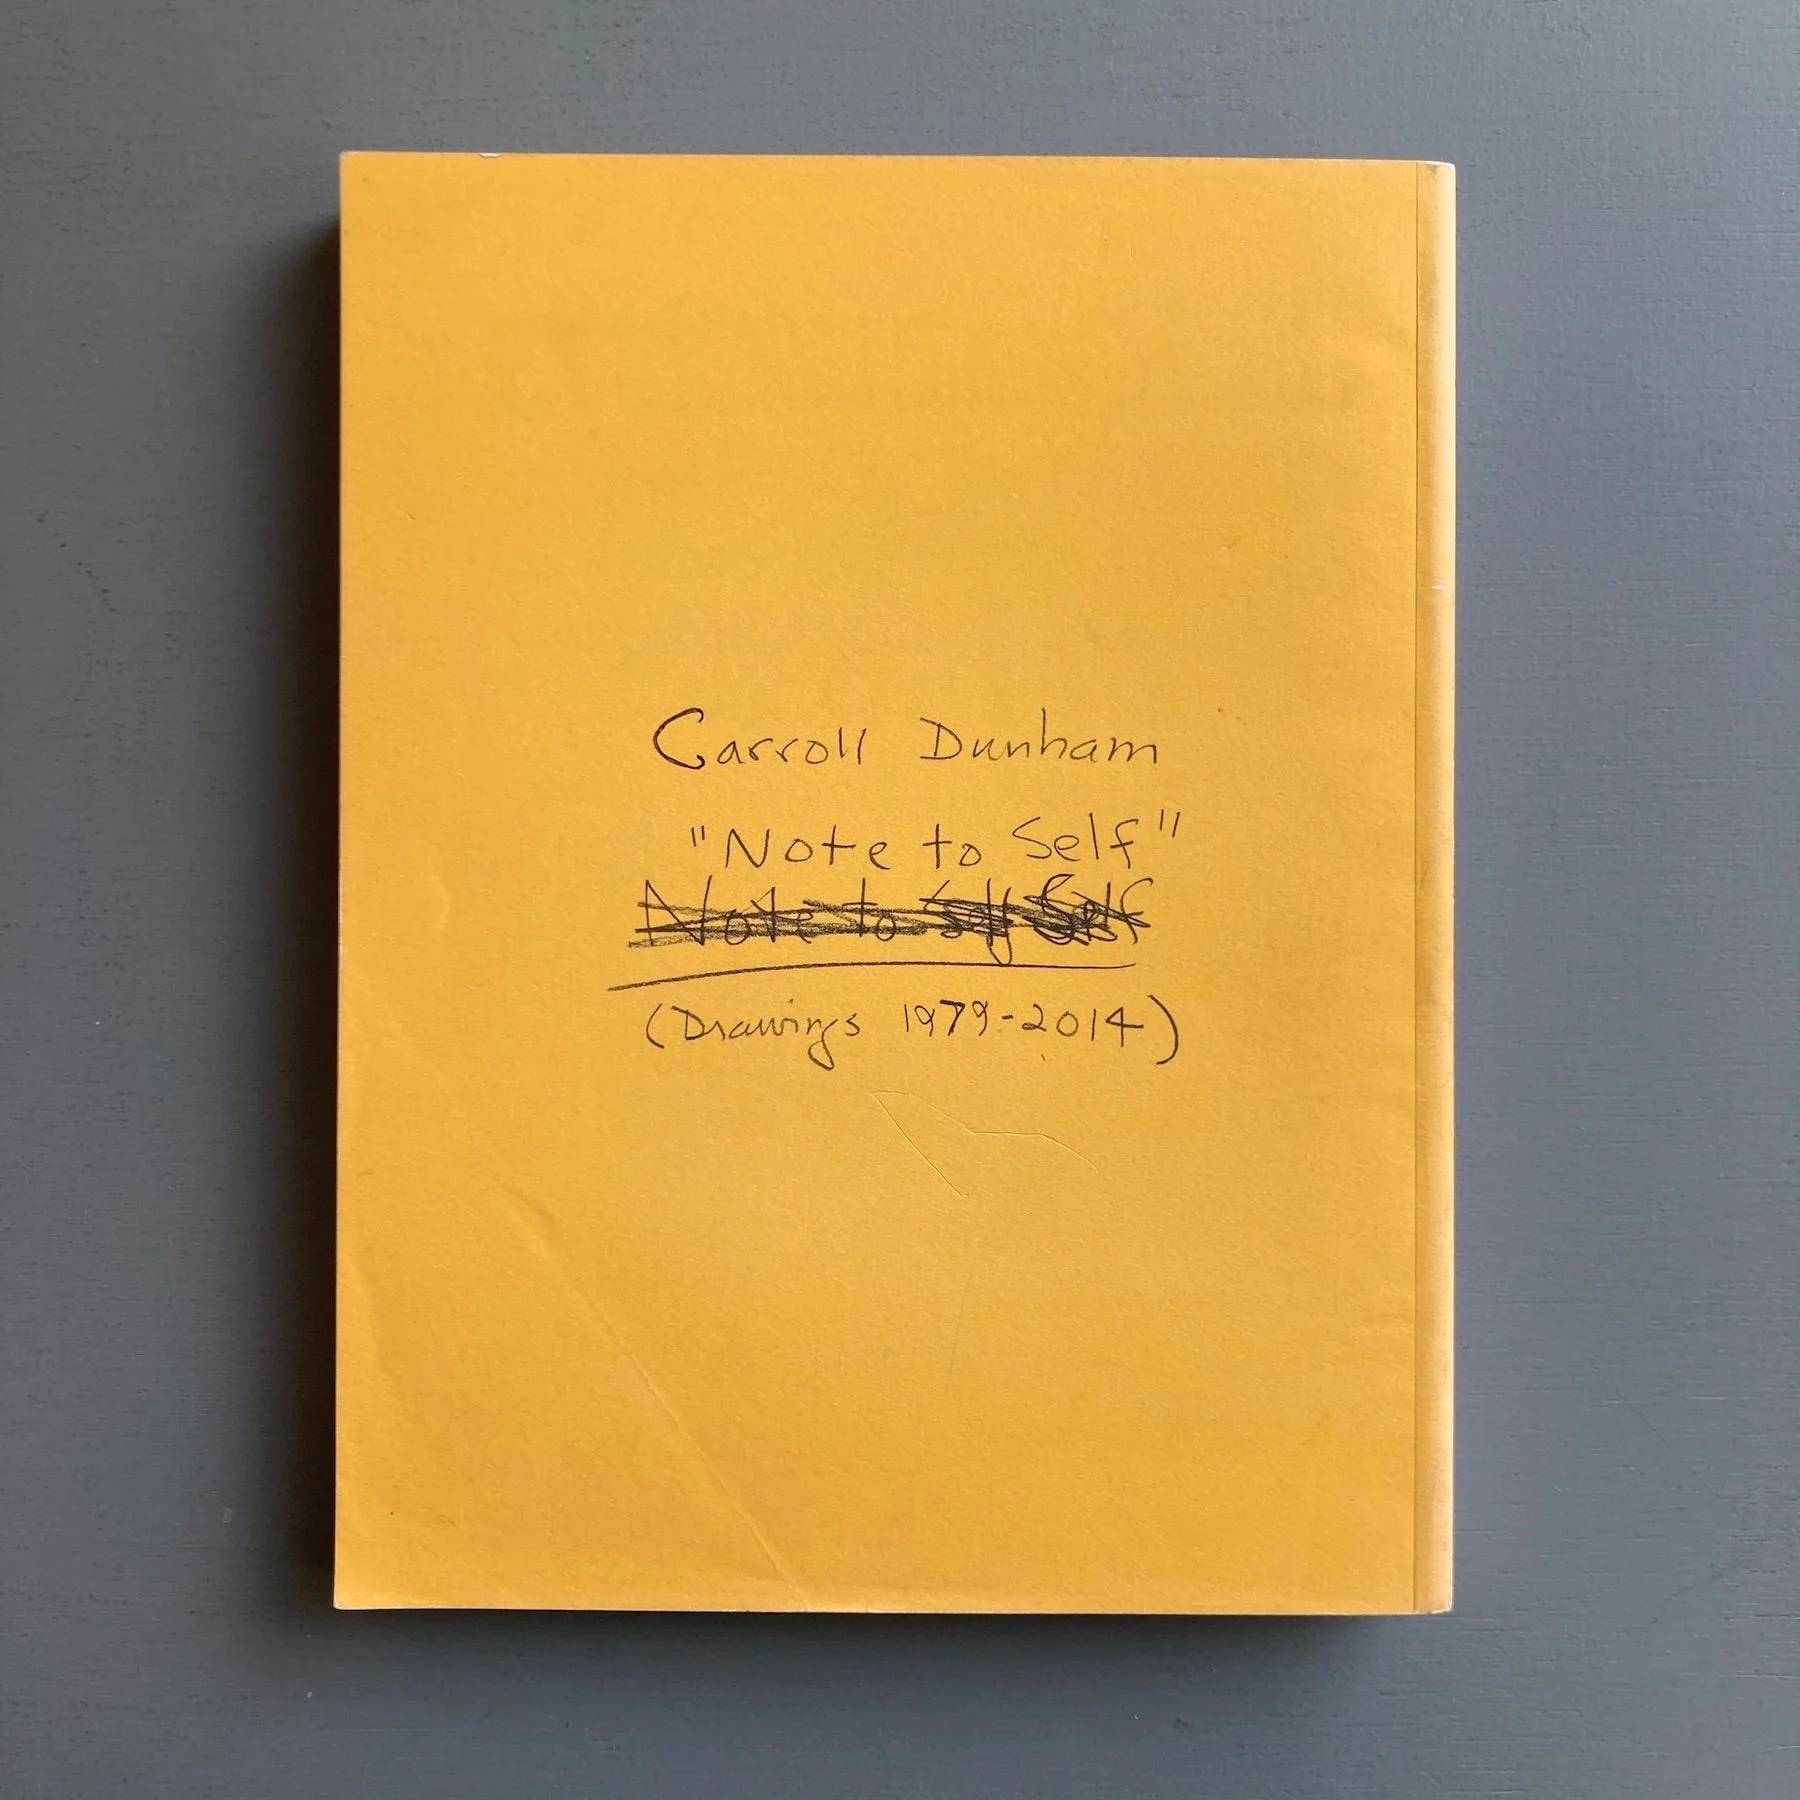 Carroll Dunham
"Note to Self"
Note to Self Self
(Drawings 1979-2014)